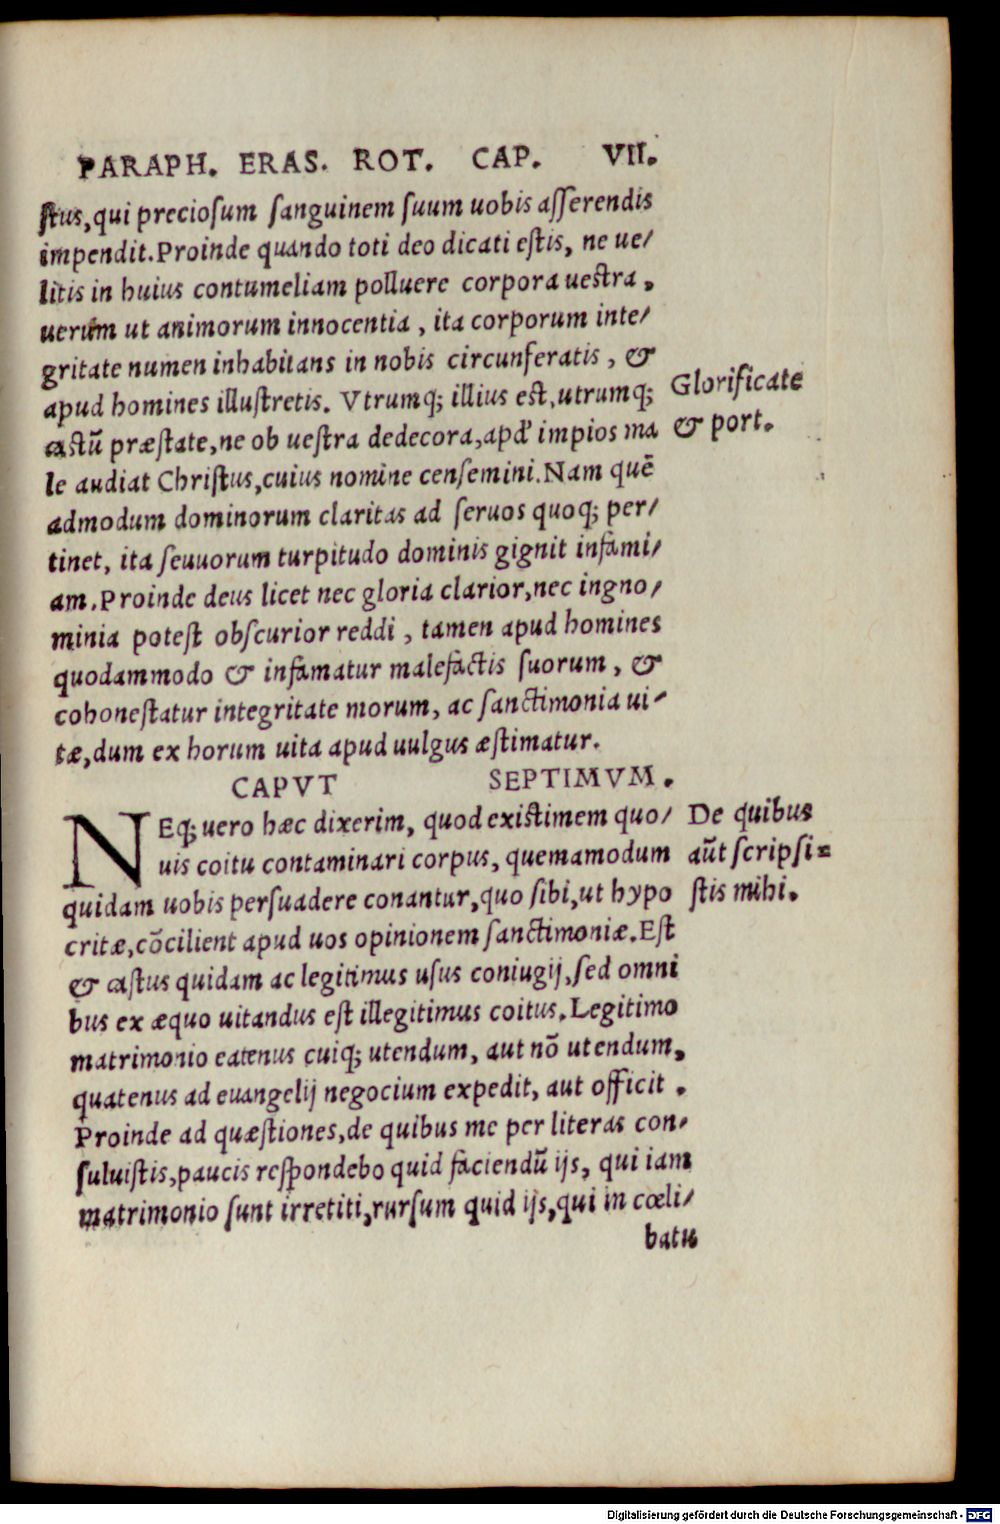 PARAPH. ERAS. ROT. CAP. VII.
ſtus,qui precioſum ſanguinem ſuum uobis aſſerendis
impendit.Proinde quando toti deo dicati eſtis, ne ue/
litis in huius contumeliam polluere corpora ueſtra .
uerum ut animorum innocentia , ita corporum inte/
gritate numen inhabitans in nobis circunferatis , &
apud homines illuſtretis. Vtrumq; illius eſt,utrumq;
caſtū præſtate,ne ob ueſtra dedecora,apd' impios ma
le audiat Chriſtus,cuius nomine cenſemini.Nam quē
admodum dominorum claritas ad ſeruos quoq; per/
tinet, ita ſeuuorum turpitudo dominis gignit infami/
am.Proinde deus licet nec gloria clarior,nec ingno/
minia poteſt obſcurior reddi , tamen apud homines
quodammodo & infamatur malefactis ſuorum , &
cohoneſtatur integritate morum, ac ſanctimonia ui/
tæ,dum ex horum uita apud uulgus æſtimatur.
Glorificate
& port.
CAPVT SEPTIMVM.
NEq; uero hæc dixerim, quod exiſtimem quo/
uis coitu contaminari corpus, quemamodum
quidam uobis perſuadere conantur,quo ſibi,ut hypo
critæ,cōcilient apud uos opinionem ſanctimoniæ.Eſt
& caſtus quidam ac legitimus uſus coniugij,ſed omni
bus ex æquo uitandus eſt illegitimus coitus.Legitimo
matrimonio eatenus cuiq; utendum, aut nō utendum,
quatenus ad euangelij negocium expedit, aut officit .
Proinde ad quæſtiones,de quibus me per literas con/
ſuluiſtis,paucis reſpondebo quid faciendū ijs, qui iam
matrimonio ſunt irretiti,rurſum quid ijs,qui in cœli/
batu
De quibus
aūt ſcripſi=
ſtis mihi.
Digitalisierung gefördert durch die Deutsche Forschungsgemeinschaft - DFG